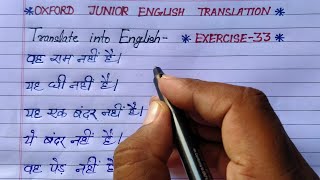 *OXFORD JUNIOR ENGLISH TRANSLATION*
Translate into English- * EXERCISE-33 *
वह राम नहीं है।
यह घी नहीं है।
यह एक बंदर नहीं है।
ये बंदर नहीं है।
वह पेड़ नहीं है